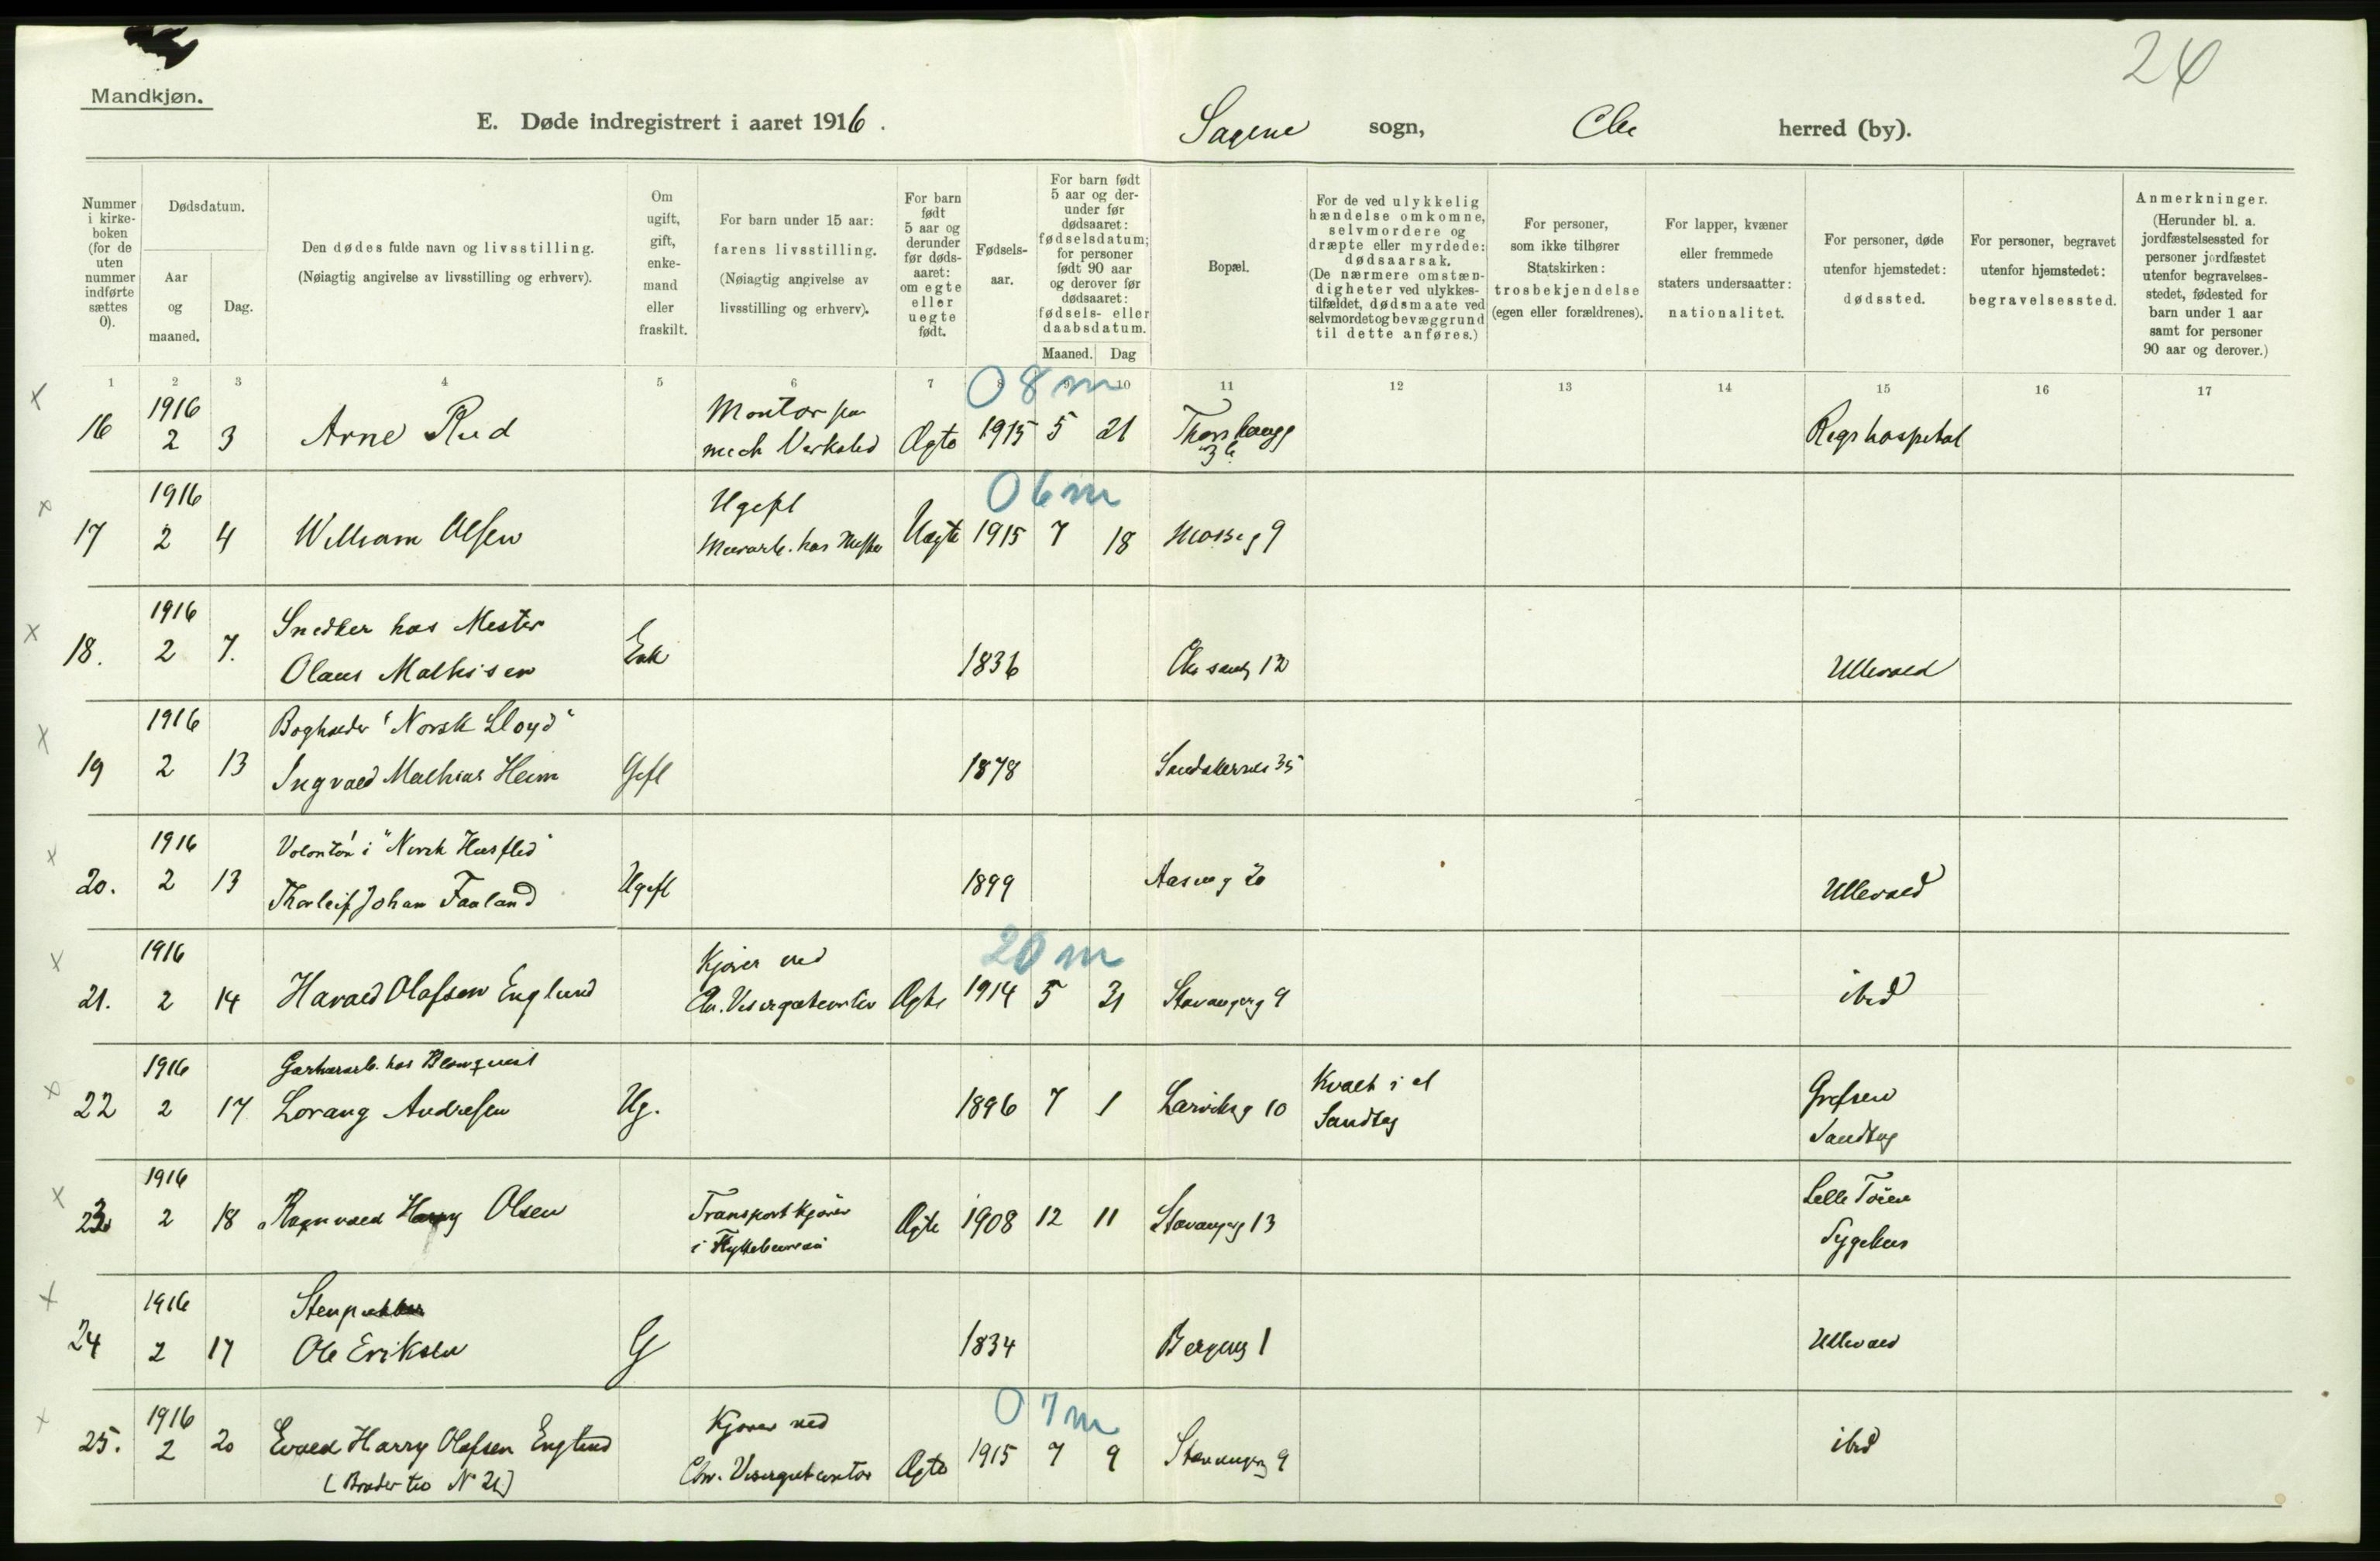 24
Mandkjøn.
E. Døde indregistrert i aaret 1916.
Sagene sogn, Chr herred (by).
Nummer i kirke-boken (for de uten nummer indførte sættes 0).
Dødsdatum.
Aar og maaned.
Dag.
Den dødes fulde navn og livsstilling.
(Nøiagtig angivelse av livsstilling og erhverv).
Om ugift, gift, enke-mand eller fraskilt.
For barn under 15 aar: farens livsstilling.
(Nøiagtig angivelse av livsstilling og erhverv).
For barn født 5 aar og derunder før døds-aaret: om egte eller uegte født.
Fødsels-aar.
For barn født 5 aar og der-under før dødsaaret: fødselsdatum; for personer født 90 aar og derover før dødsaaret: fødsels- eller daabsdatum.
Maaned. Dag
Bopæl.
For de ved ulykkelig hændelse omkomne, selvmordere og dræpte eller myrdede: dødsaarsak.
(De nærmere omstæn-digheter ved ulykkes-tilfældet, dødsmaate ved selvmordet og bevæggrund til dette anføres.)
For personer, som ikke tilhører Statskirken: trosbekjendelse (egen eller forældrenes).
For lapper, kvæner eller fremmede staters undersaatter: nationalitet.
For personer, døde utenfor hjemstedet: dødssted.
For personer, begravet utenfor hjemstedet: begravelsessted.
Anmerkninger.
(Herunder bl. a. jordfæstelsessted for personer jordfæstet utenfor begravelses-stedet, fødested for barn under 1 aar samt for personer 90 aar og derover.)
1 2 3 4 5 6 7 8 9 10 11 12 13 14 15 16 17
08 m
1916 Montør paa
16 2 3 Arne Rud mech Verksted Ægte 1915 5 21 Thorshaugg 3 b Rigshospital
06 m
1916 Ugift
17 2 4 William Olsen hos Uægte 1915 7 18 Mosseg 9
1916 Snedker hos Mester
18. 2 7. Olaus Mathisen Enk 1836 12 Ullevaal
1916 Bogholder "Norsk Lloyd"
19 2 13 Ingvald Mathias Heim Gift 1878 Sandakerveien 35
1916 Volontør i "Norsk Husflid"
20. 2 13 Thorleif Johan Faaland Ugift 1899 Ullevaal
20 m
1916 Kjører ved
21. 2 14 Harald Olafsen Englund Chr. Visergutkontor Ægte 1914 5 31 Stavangerg 9 ibid
1916 Garverarb. hos Blomquist
22 2 17 Lorang Andresen Ug. 1896 7 1 Larviksg 10 Kvalt i et Sandtag Grefsen Sandtag
1916
23 2 18 Ragnvald Harry Olsen Transportkjører i Flyttebureau Ægte 1908 12 11 Stavangerg 13 Lille Tøien Sygehus
1916
24 2 17 Ole Eriksen G 1834 Bergensg 1 Ullevaal
07 m
1916 Kjører ved
25. 2 20 Evald Harry Olafsen Englund Chr. Visergutkontor Ægte 1915 7 9 Stavangerg 9 ibid
[Broder til N 21]